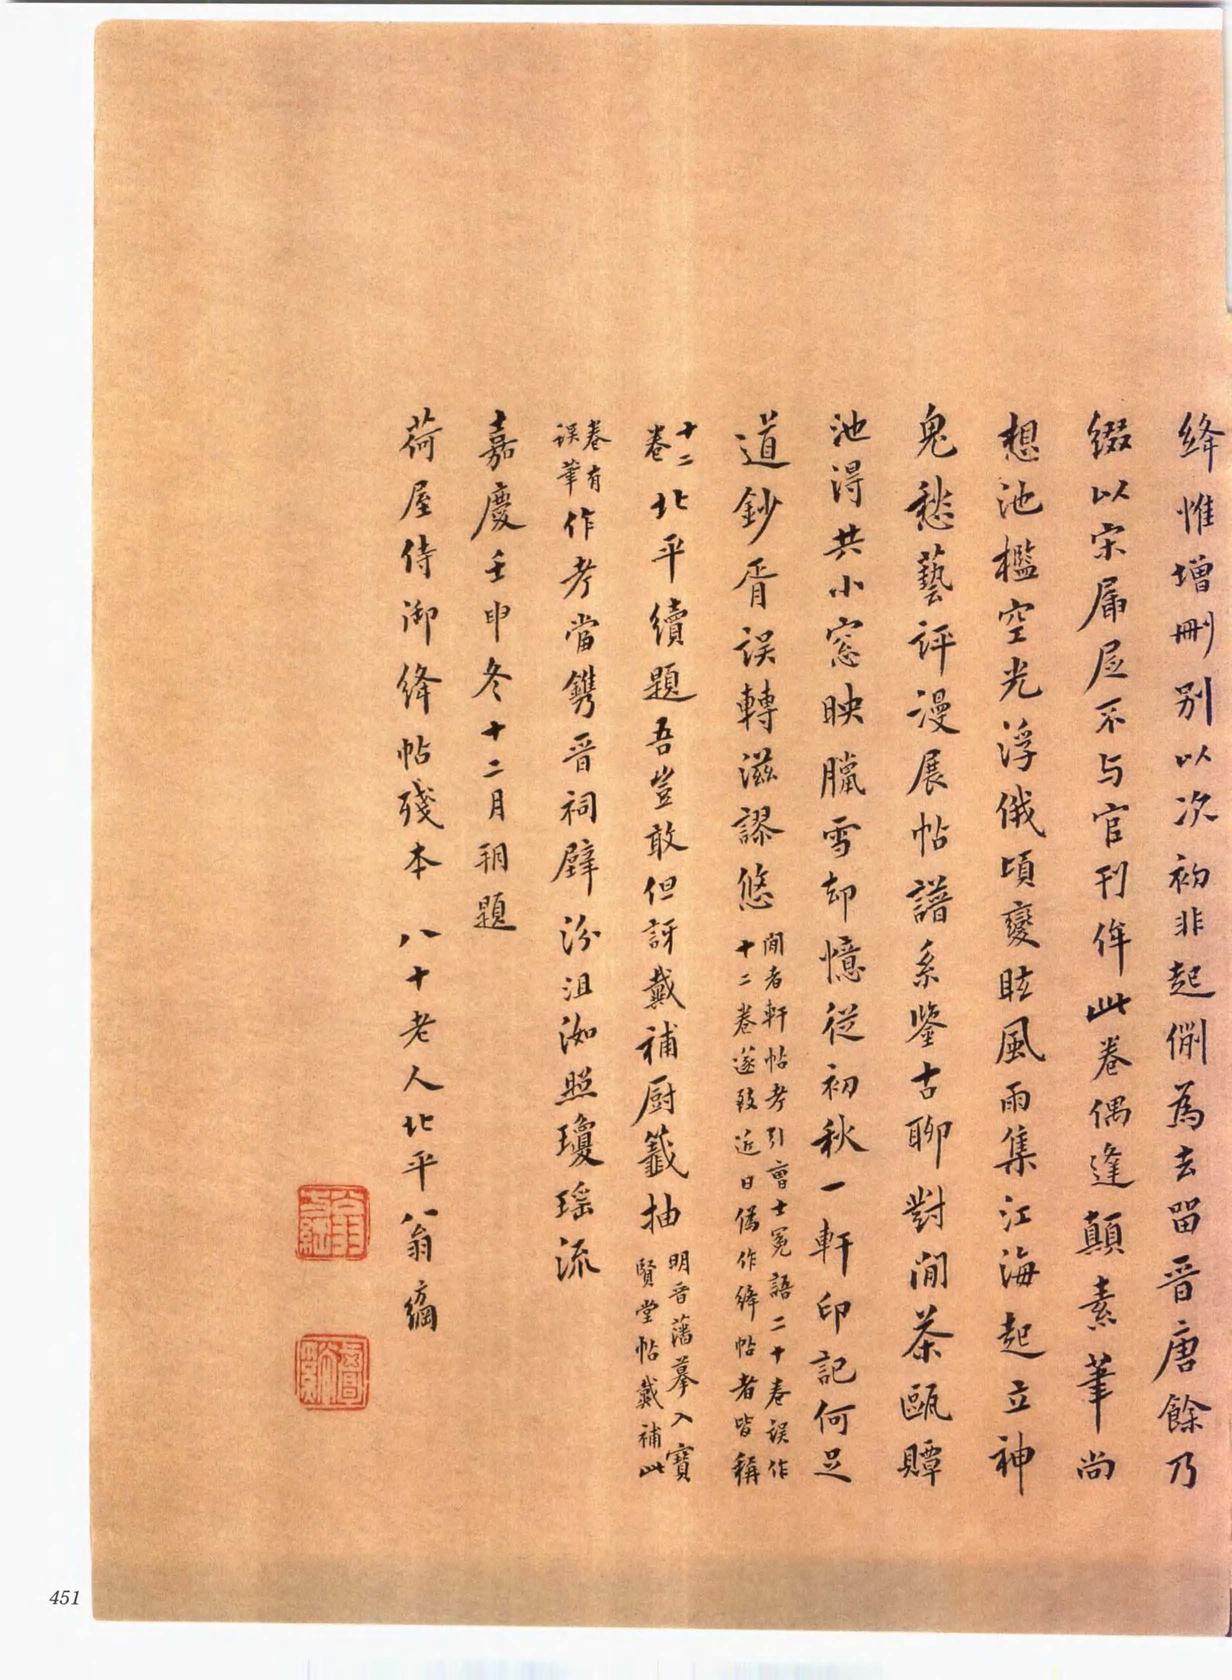 絳惟增刪別以次初非起例為去留晉唐餘乃
綴以宋羼屍不与官刊侔此卷偶逢顛素筆尚
想池檻空光浮俄頃變眩風雨集江海起立神
鬼愁藝評漫展帖譜系鑒古聊對閒茶甌贉
池淂共小窓映臘雪却憶從初秋一軒印記何足
道鈔胥誤轉滋謬悠
閒者軒帖考引曹士冕語二十卷误作
十二卷遂致近日僞作絳帖者皆稱
十二
卷
北平續題吾豈敢但訝戴補厨籤抽
明晉藩摹入寶
賢堂帖戴補此
卷有
误筆
作考當鐫晉祠壁汾沮洳照瓊瑶流
嘉慶壬申冬十二月朔題
荷屋侍御絳帖殘本 八十老人北平翁方綱
451